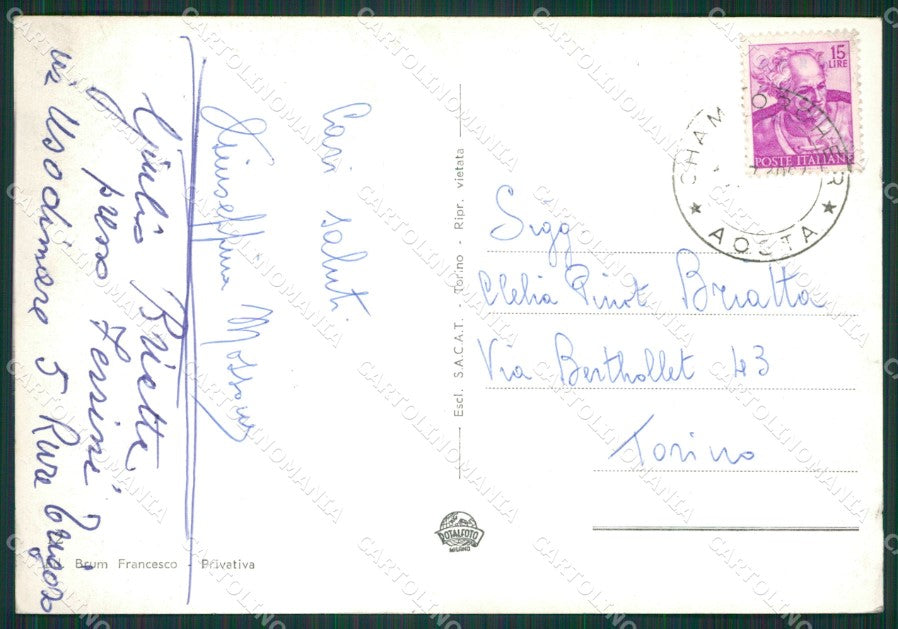 Cari saluti
Giuseppina Mossoni
Giulio Brietta
presso Ferrini
via Usodimare 5 Riva Trigoso
Ed. Brum Francesco - Privativa
Escl. S.A.C.A.T. - Torino - Ripr. vietata
ROTALFOTO
MILANO
15
LIRE
POSTE ITALIANE
CHAMPORCHER
★ AOSTA ★
Sigg
Clelia Pinot Briatta
Via Berthollet 43
Torino
CARTOLINOMANIA